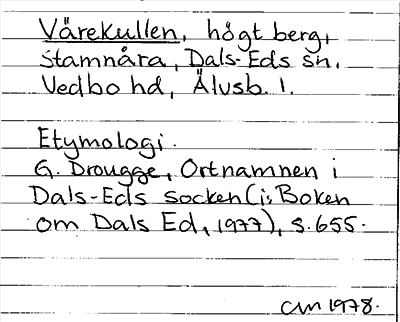 Värekullen, högt berg,
Stamnåra, Dals-Eds sn,
Vedbo hd, Älvsb. l.
Etymologi.
G. Drougge, Ortnamnen i
Dals-Eds socken (i: Boken
om Dals Ed, 1977), s. 655.
CM 1978.